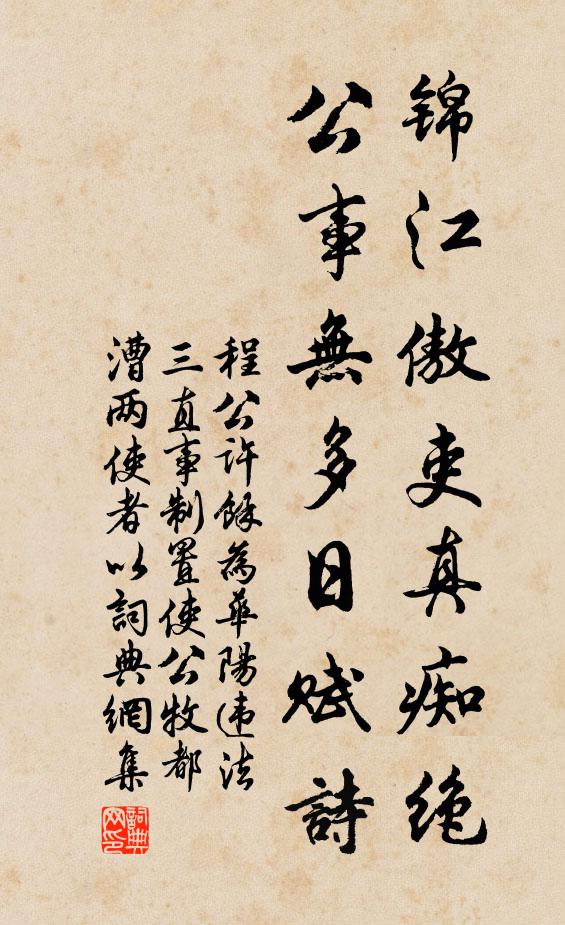 锦江傲吏真痴绝
公事無多日賦詩
程公许餘為華陽违法
三直事制置使公牧都
漕两使者以詞典網集
詞典
网印